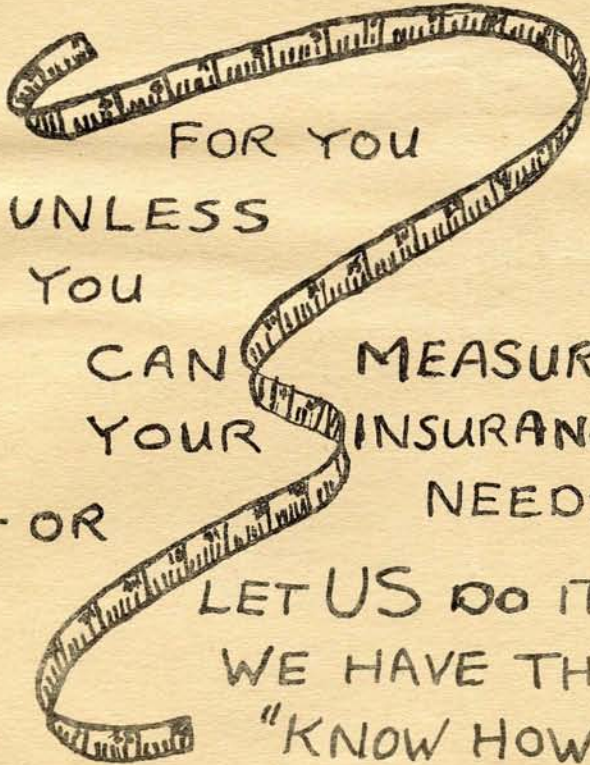 FOR YOU
UNLESS
YOU
CAN MEASUR
YOUR INSURAN
NEED
- OR
LET US DO IT
WE HAVE TH
"KNOW HOW